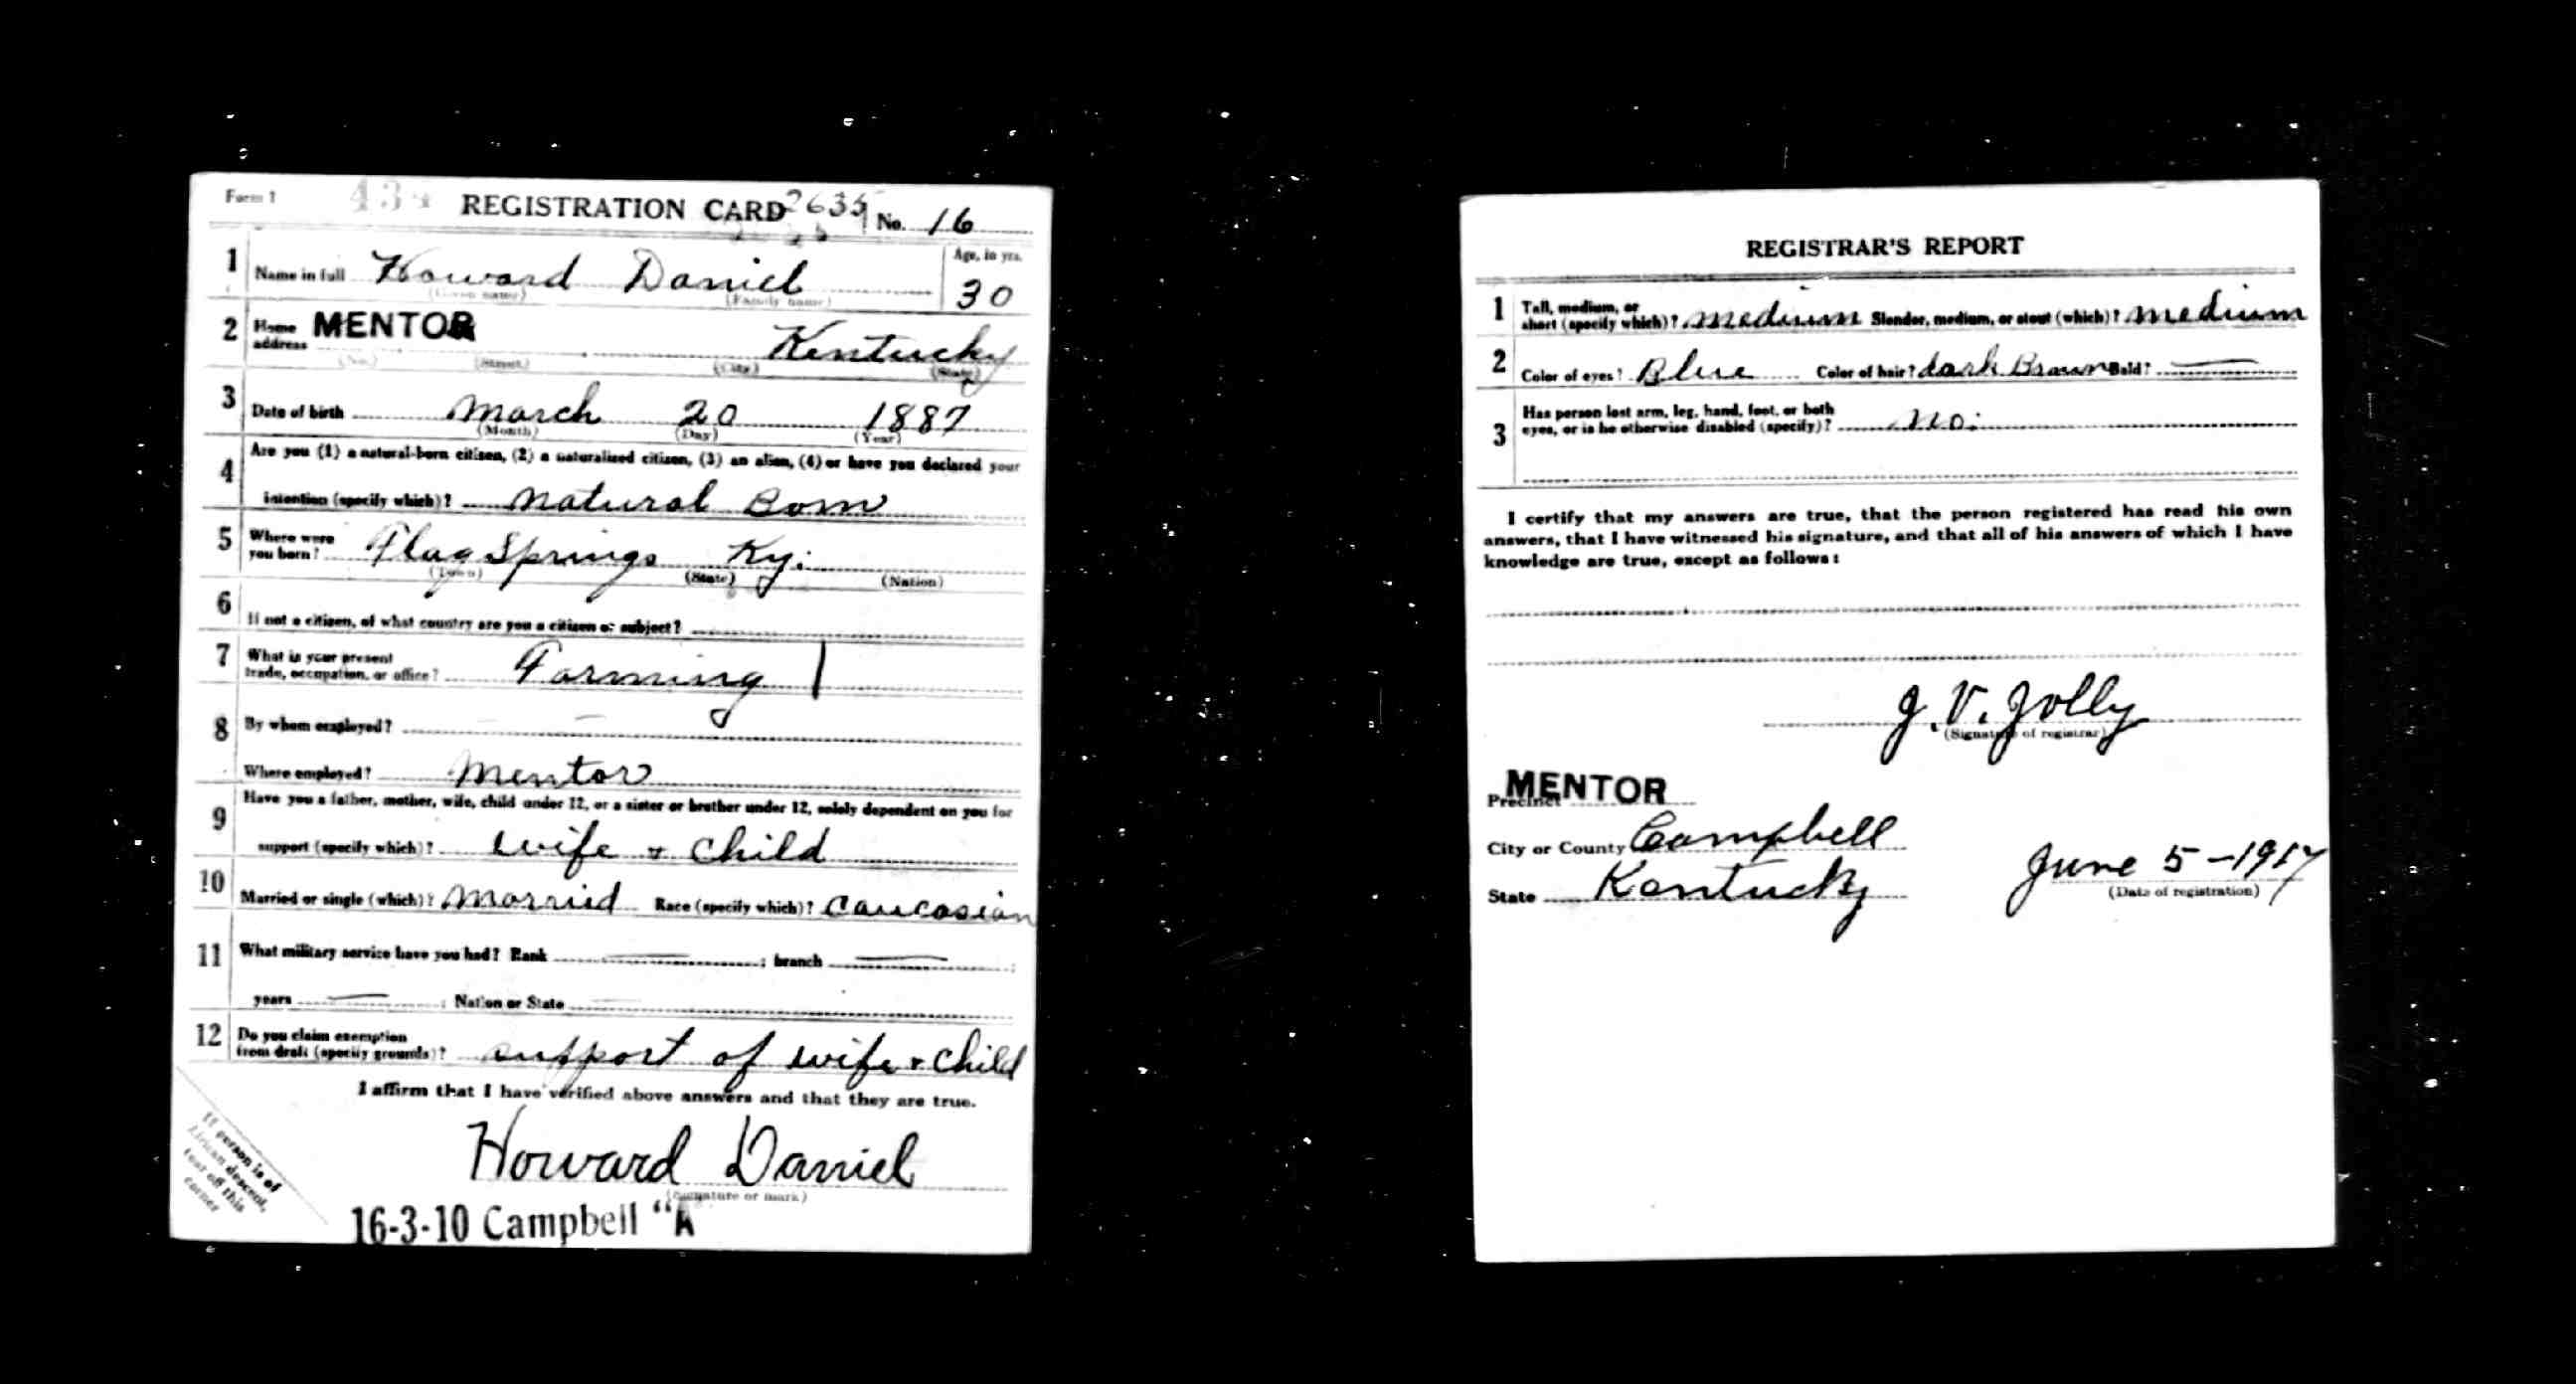 Form 1 REGISTRATION CARD 2635 No. 16
1 Name in full Howard Daniel Age, in yrs.
(Given name) (Family name) 30
2 Home address MENTOR Kentucky
(No.) (Street) (City) (State)
3 Date of birth March 20 1887
(Month) (Day) (Year)
4 Are you (1) a natural-born citizen, (2) a naturalized citizen, (3) an alien, (4) or have you declared your
intention (specify which)? Natural Born
5 Where were you born? Flag Springs Ky.
(Town) (State) (Nation)
6 If not a citizen, of what country are you a citizen or subject?
7 What is your present
trade, occupation, or office? Farming
8 By whom employed? —
Where employed? Mentor
9 Have you a father, mother, wife, child under 12, or a sister or brother under 12, solely dependent on you for
support (specify which)? wife + child
10 Married or single (which)? Married Race (specify which)? Caucasian
11 What military service have you had? Rank — ; branch — ;
years — ; Nation or State —
12 Do you claim exemption
from draft (specify grounds)? support of wife + child
I affirm that I have verified above answers and that they are true.
Howard Daniel
(Signature or mark)
If person is of
African descent,
tear off this
corner
16-3-10 Campbell "A
REGISTRAR'S REPORT
1 Tall, medium, or
short (specify which)? medium Slender, medium, or stout (which)? medium
2 Color of eyes? Blue Color of hair? dark Brown Bald? —
3 Has person lost arm, leg, hand, foot, or both
eyes, or is he otherwise disabled (specify)? no.
I certify that my answers are true, that the person registered has read his own
answers, that I have witnessed his signature, and that all of his answers of which I have
knowledge are true, except as follows:
J. V. Jolly
(Signature of registrar)
Precinct MENTOR
City or County Campbell
State Kentucky
June 5-1917
(Date of registration)